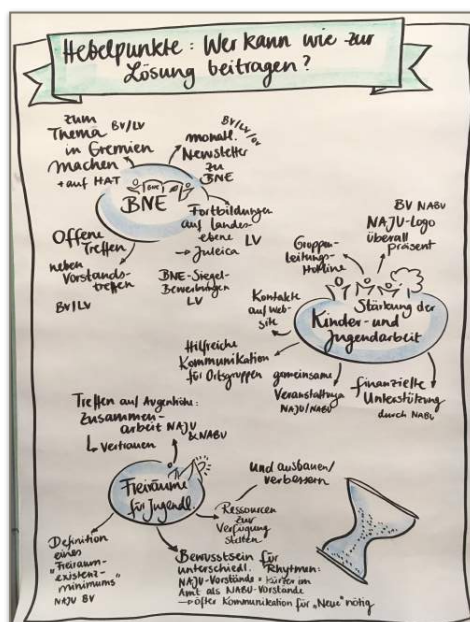 Hebelpunkte: Wer kann wie zur
Lösung beitragen?
zum
Thema BV/LV
in Gremien
machen
+ auf HAT
BV/LV/OV
monatl.
Newsletter
zu
BNE
BNE
BNE
Fortbildungen
auf Landes-
ebene LV
→ Juleica
BNE-Siegel-
Bewerbungen
LV
Offene
Treffen
neben
Vorstands-
treffen
BV/LV
BV NABU
NAJU-Logo
überall
präsent
Gruppen-
leitungs-
Hotline
Stärkung der
Kinder- und
Jugendarbeit
Kontakte
auf Web-
site
Hilfreiche
Kommunikation
für Ortsgruppen
gemeinsame
Veranstaltungen
NAJU/NABU
finanzielle
Unterstützung
durch NABU
Treffen auf Augenhöhe:
Zusammen-
arbeit NAJU
NABU
↳ Vertrauen
Freiräume
für Jugendl.
und ausbauen/
verbessern
Ressourcen
zur
Verfügung
stellen
Definition
eines
"Freiraum-
existenz-
minimums"
NAJU BV
Bewusstsein für
unterschiedl. Rhytmen:
NAJU-Vorstände kürzer im
Amt als NABU-Vorstände
→ öfter Kommunikation für "Neue" nötig